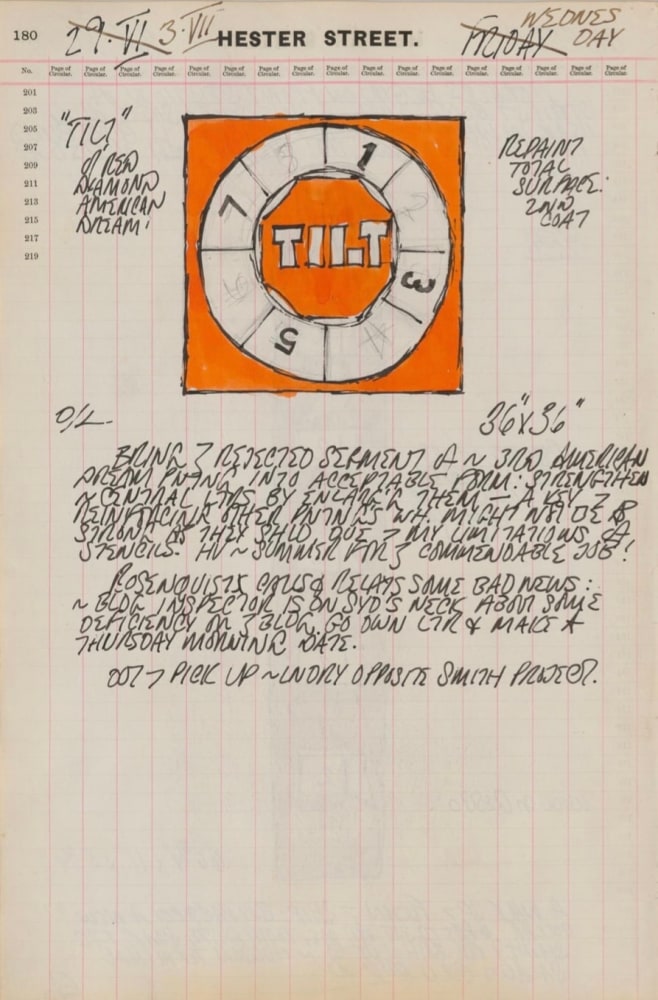 180
29·VI 3·VII HESTER STREET. FRIDAY WEDNES
DAY
No. Page of Circular. Page of Circular. Page of Circular. Page of Circular. Page of Circular. Page of Circular. Page of Circular. Page of Circular. Page of Circular. Page of Circular. Page of Circular. Page of Circular. Page of Circular. Page of Circular. Page of Circular. Page of Circular. Page of Circular
201
203
205
207
209
211
213
215
217
219
"TILT"
RED
DIAMOND
AMERICAN
DREAM
8 1
7 2
TILT
6 3
5 4
REPAINT
TOTAL
SURFACE:
2ND
COAT
O/L.
36"X36"
BRING REJECTED SEGMENT ~ 3RD AMERICAN
DREAM PNTNG INTO ACCEPTABLE FORM: STRENGTHEN
~ CENTRAL LTRS BY THEM — A KEY
REINFORCING OTHER PNTNGS WH. MIGHT NOT BE
STRONG AS THEY SHLD DUE MY LIMITATIONS
STENCILS. HV ~ SUMMER COMMENDABLE JOB!
ROSENQUIST CALLS & RELAYS SOME BAD NEWS:
~ BLDG INSPECTOR IS ON SYD'S NECK ABOUT SOME
DEFICIENCY BLDG. GO DWN LTR & MAKE A
THURSDAY MORNING DATE.
OUT PICK UP ~ LNDRY OPPOSITE SMITH PROJECT.